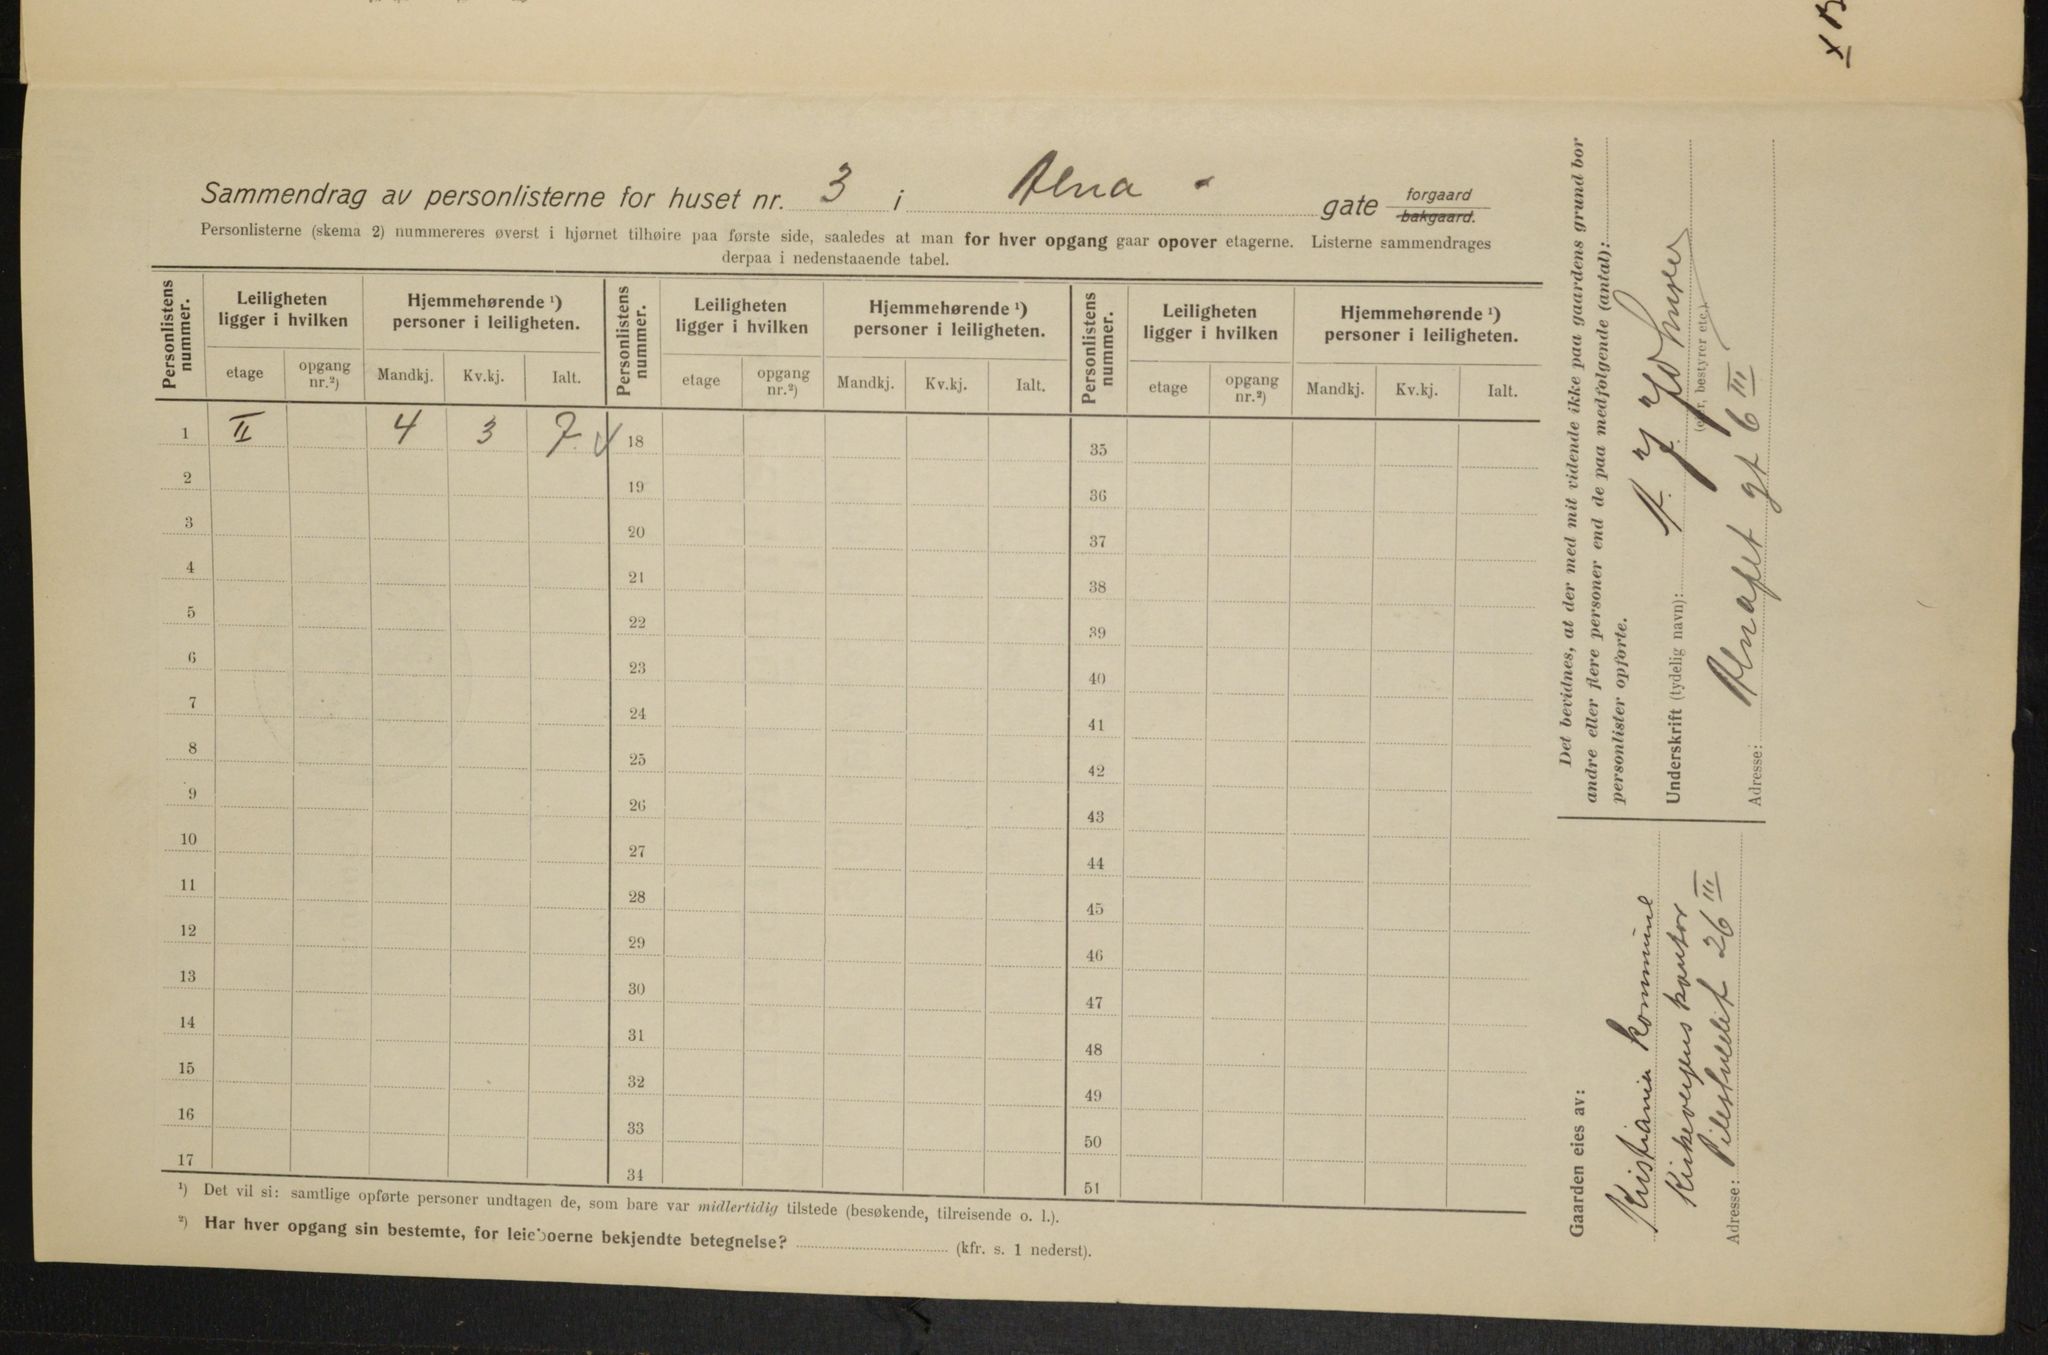 Sammendrag av personlisterne for huset nr. 3 i Alna gate forgaard bakgaard.
Personlisterne (skema 2) nummereres øverst i hjørnet tilhøire paa første side, saaledes at man for hver opgang gaar opover etagerne. Listerne sammendrages
derpaa i nedenstaaende tabel.
Personlistens nummer. Leiligheten ligger i hvilken Hjemmehørende ¹) personer i leiligheten. Personlistens nummer. Leiligheten ligger i hvilken Hjemmehørende ¹) personer i leiligheten. Personlistens nummer. Leiligheten ligger i hvilken Hjemmehørende ¹) personer i leiligheten.
etage opgang nr.²) Mandkj. Kv.kj. Ialt. etage opgang nr.²) Mandkj. Kv.kj. Ialt. etage opgang nr.²) Mandkj. Kv.kj. Ialt.
1 II 4 3 7 18 35
2 19 36
3 20 37
4 21 38
5 22 39
6 23 40
7 24 41
8 25 42
9 26 43
10 27 44
11 28 45
12 29 46
13 30 47
14 31 48
15 32 49
16 33 50
17 34 51
¹) Det vil si: samtlige opførte personer undtagen de, som bare var midlertidig tilstede (besøkende, tilreisende o. l.).
²) Har hver opgang sin bestemte, for leieboerne bekjendte betegnelse? (kfr. s. 1 nederst).
Det bevidnes, at der med mit vidende ikke paa gaardens grund bor
andre eller flere personer end de paa medfølgende (antal):
personlister opførte.
Underskrift (tydelig navn): A. J. Johnsen
(eier, bestyrer etc.)
Adresse: gt 6 III
Gaarden eies av:
Kristiania kommune
Kirkevergens kontor
Adresse: Pilestrædet 26 III